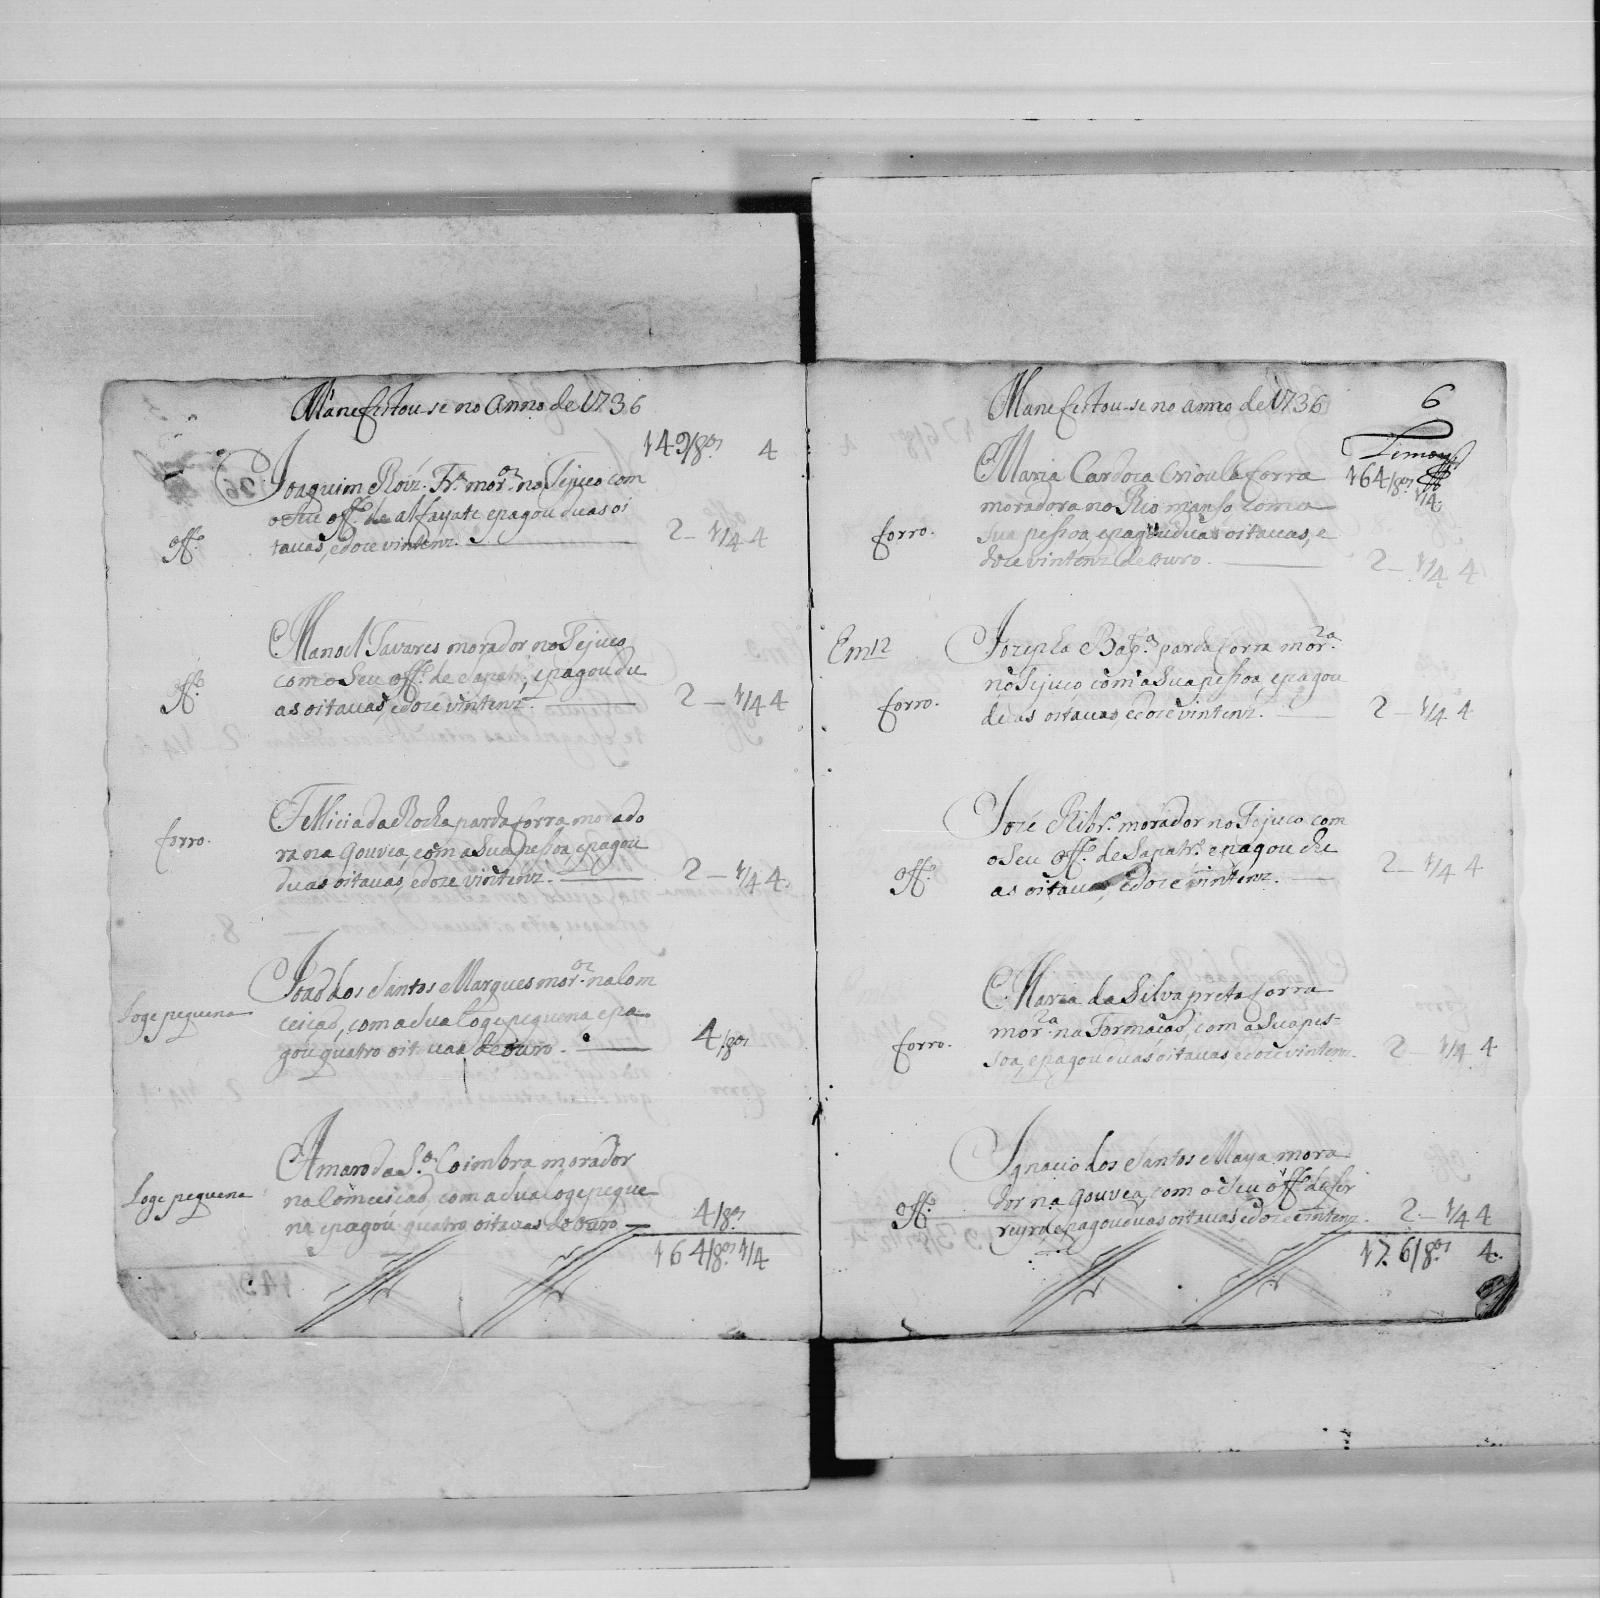 Manefestou-se no Anno de 1736
149/8.as 4
Joaquim Roiz. Fr.a mor.or no Tejuco com
o seu off.o de alfayate epagou duas oi
off.o
tavas, edoze vintenz. 2 — 1/4 4
Manoel Tavares morador no Tejuco
com o Seu off.o de Sapatr.o, epagou du
off.o
as oitavas, edoze vintenz. 2 — 1/4 4
Felliciada Rocha parda forra morado
forro.
ra na Gouvea, com a Sua pessoa, epagou
duas oitavas, edoze vintenz. 2 — 1/4 4
João dos Santos Marques mor.or na Com
Loge pequena
ceicaõ, com a sua loge pequena epa
gou quatro oitavas de ouro. 4/8as
Amaro da S.a Coimbra morador
Loge pequena
na Comceicaõ, com a sua loge peque
na epagou quatro oitavas de ouro 4/8as
164/8.as 1/4
Manefestou-se no anno de 1736
6
Maria Cardoza Crioulla forra
164/8as 1/4
moradora no Rio manso com a
forro.
Sua pessoa, epagou duas oitavas, e
doze vintenz de ouro. 2 — 1/4 4
Em 12
Jozepha Bap.ta parda forra mor.ra
no Tejuco com a Sua pessoa, epagou
forro.
duas oitavas, edoze vintenz. 2 — 1/4 4
José Ribr.o morador no Tejuco com
o Seu off.o de Sapatr.o epagou du
off.o
as oitavas, edoze vintenz. 2 — 1/4 4
Maria da Silva preta forra
mor.ra na Formacas, com a Sua pes=
forro.
soa, epagou duas oitavas, edoze vintenz. 2 — 1/4 4
Ignacio dos Santos Maya mora
dor na Gouvea, com o Seu off.o de fer
off.o
reyro epagou duas oitavas edoze vintenz. 2 — 1/4 4
176/8.as 4